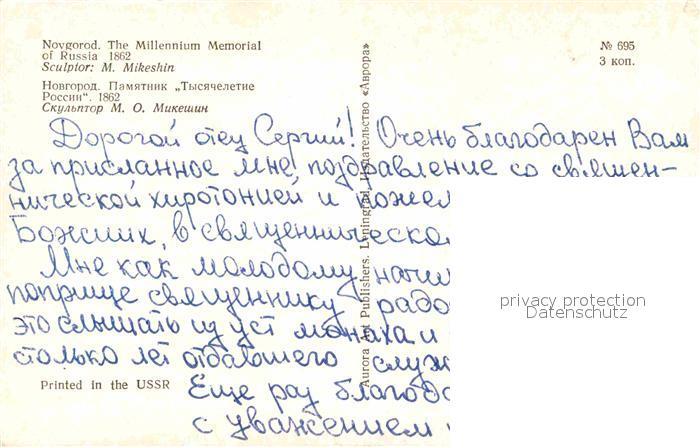 Novgorod. The Millennium Memorial
of Russia 1862
Sculptor: M. Mikeshin
Новгород. Памятник „Тысячелетие
России“. 1862
Скульптор М. О. Микешин
№ 695
3 коп.
Aurora Art Publishers. Leningrad. Издательство «Аврора»
Дорогой отец Сергий! Очень благодарен Вам
за присланное мне, поздравление со священ-
нической хиротонией и пожел
Божиих, в священническо
Мне как молодому, начи
поприще священнику радо
это слышать из уст монаха и
столько лет отдавшего служ
Еще раз благода
с уважением
Printed in the USSR
privacy protection
Datenschutz